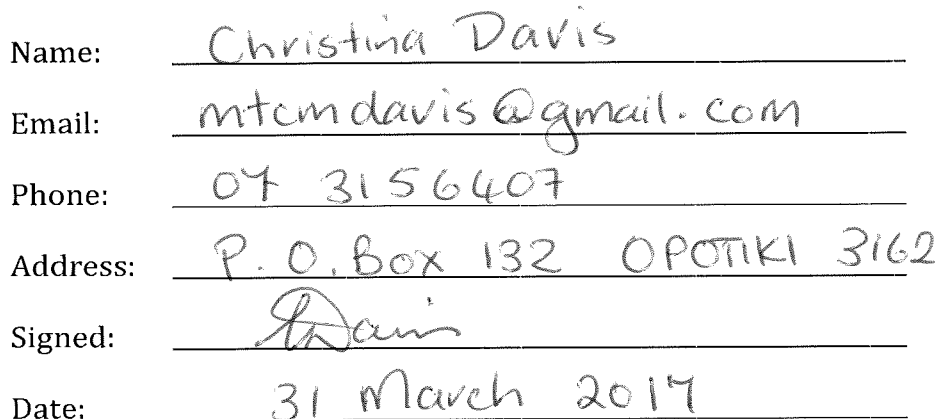 Name: Christina Davis
Email: mtcmdavis@gmail.com
Phone: 07 3156407
Address: P.O. Box 132 OPOTIKI 3162
Signed: CDavis
Date: 31 March 2017